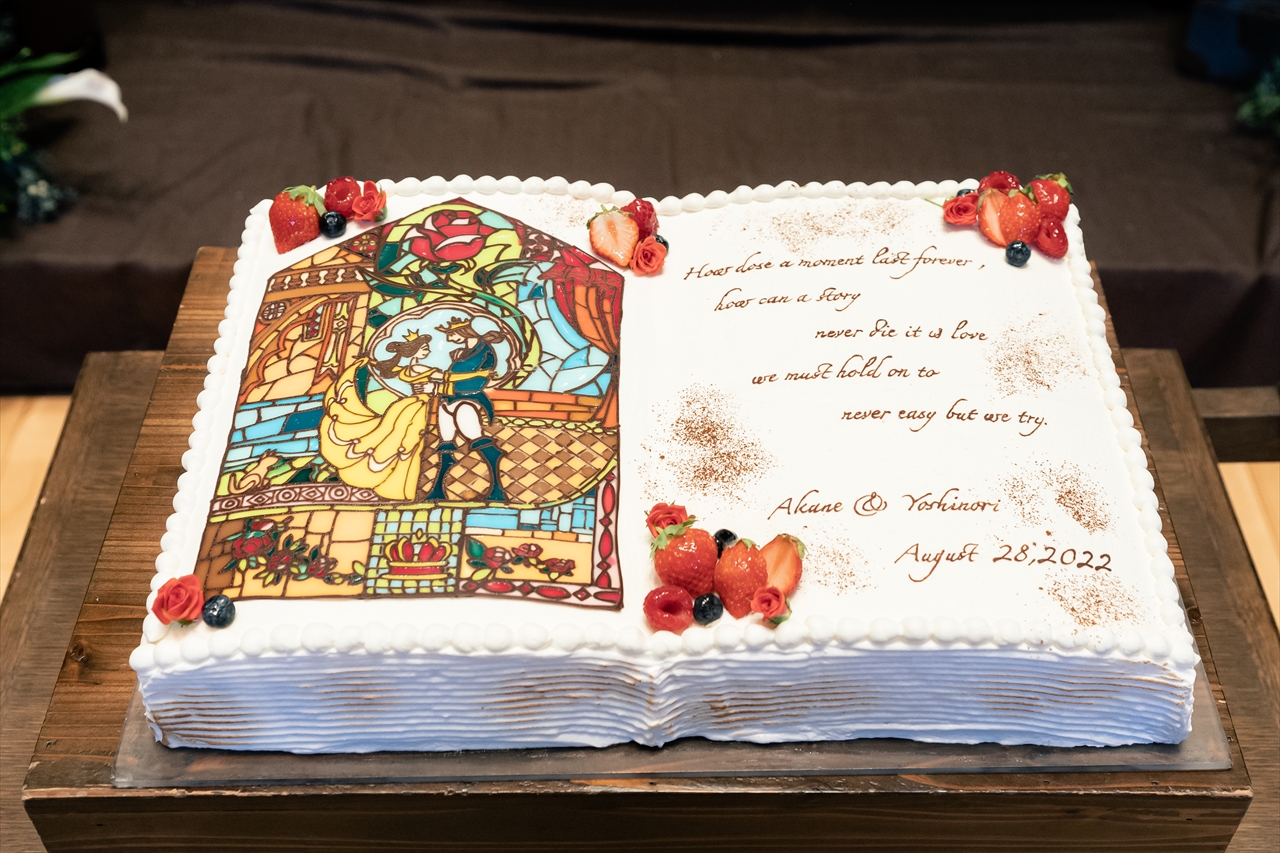 How dose a moment last forever,
how can a story
never die it is love
we must hold on to
never easy but we try.
Akane & Yoshinori
August 28,2022